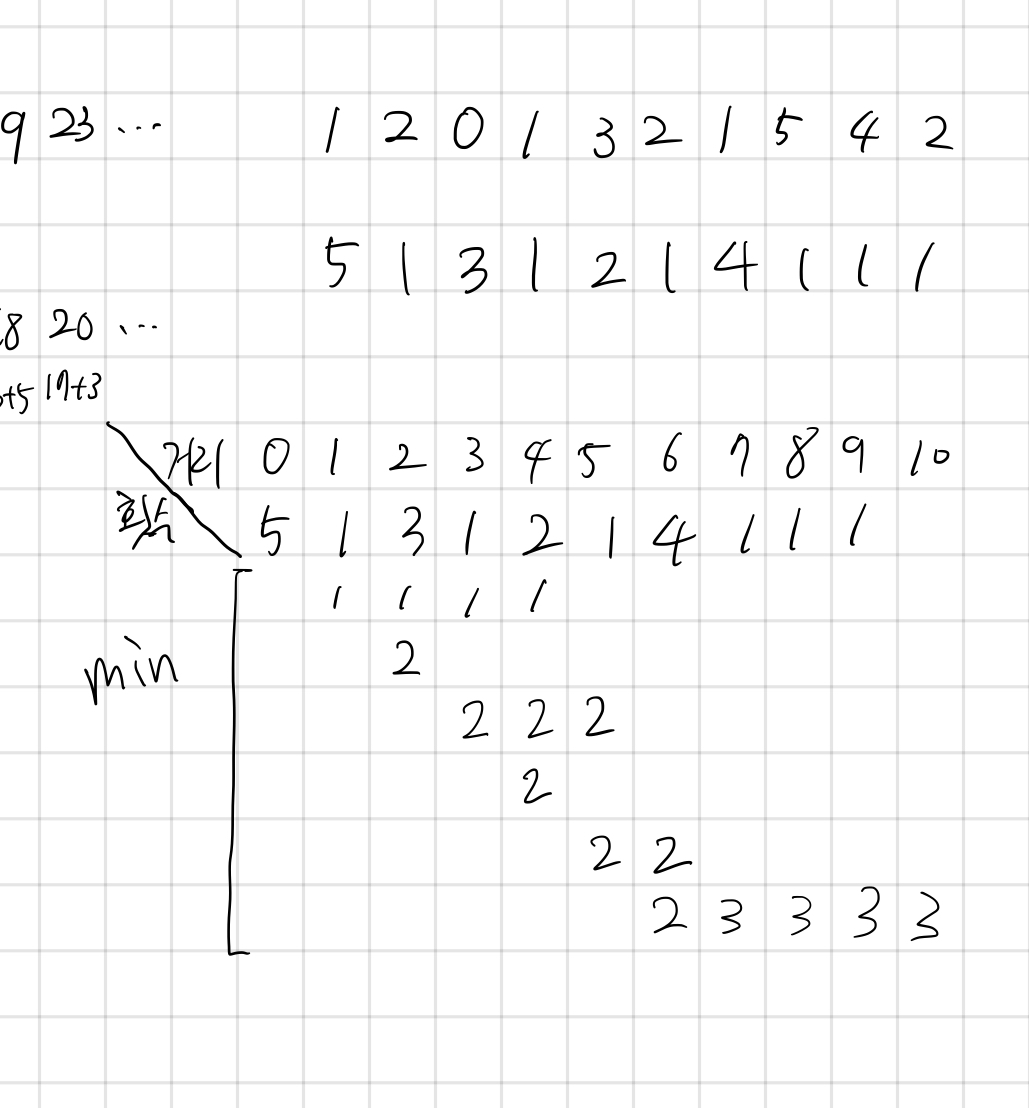 9 23 ... 1 2 0 1 3 2 1 5 4 2
5 1 3 1 2 1 4 1 1 1
8 20 ...
+5 17+3
거리 0 1 2 3 4 5 6 7 8 9 10
5 1 3 1 2 1 4 1 1 1
1 1 1 1
min 2
2 2 2
2
2 2
2 3 3 3 3